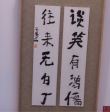 谈笑有鸿儒
往来无白丁